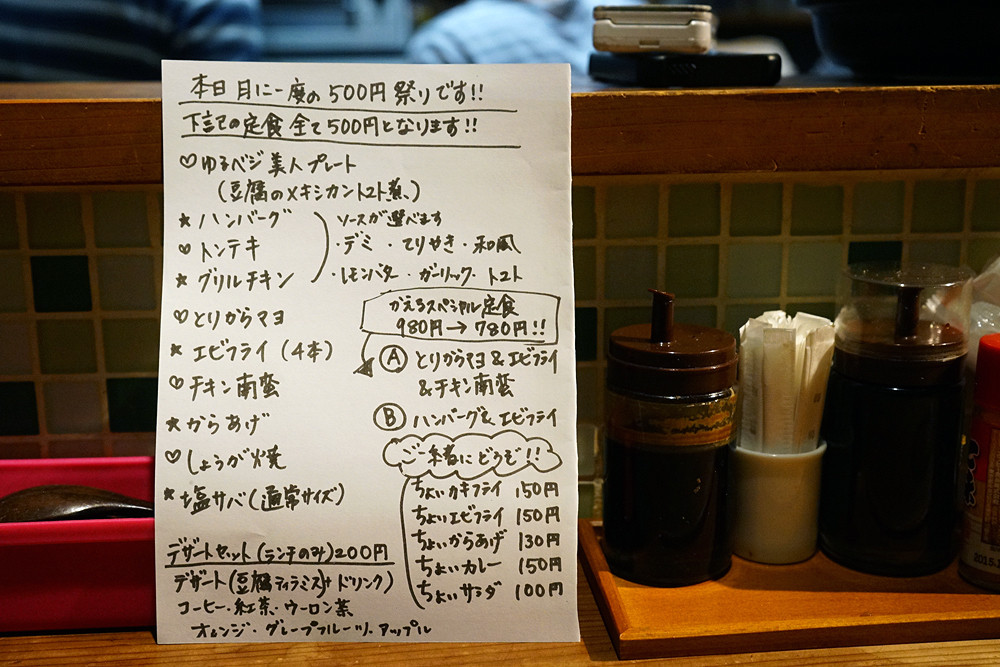 本日 月に一度の500円祭りです!!
下記の定食 全て500円となります!!
♡ゆるベジ美人プレート
(豆腐のメキシカントマト煮)
★ハンバーグ
♡トンテキ
★グリルチキン
ソースが選べます
・デミ・てりやき・和風
・レモンバター・ガーリック・トマト
♡とりからマヨ
★エビフライ(4本)
♡チキン南蛮
★からあげ
♡しょうが焼
★塩サバ(通常サイズ)
かえるスペシャル定食
980円→780円!!
Ⓐとりからマヨ&エビフライ
&チキン南蛮
Ⓑハンバーグ&エビフライ
ご一緒にどうぞ!!
ちょいカキフライ 150円
ちょいエビフライ 150円
ちょいからあげ 130円
ちょいカレー 150円
ちょいサラダ 100円
デザートセット(ランチのみ)200円
デザート(豆腐ティラミス+ドリンク)
コーヒー・紅茶・ウーロン茶
オレンジ・グレープフルーツ・アップル